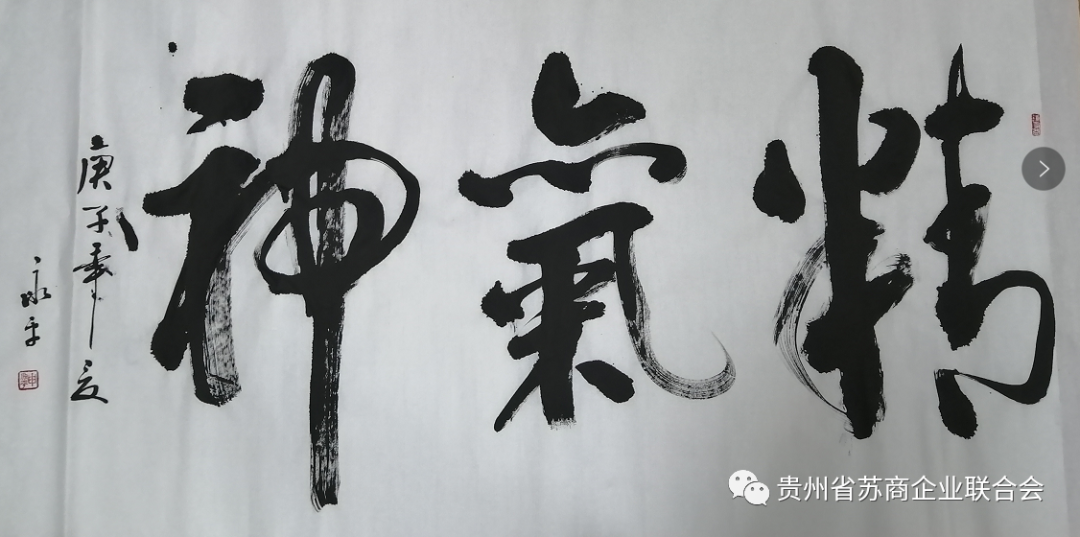 精氣神
庚子年夏
永平
贵州省苏商企业联合会